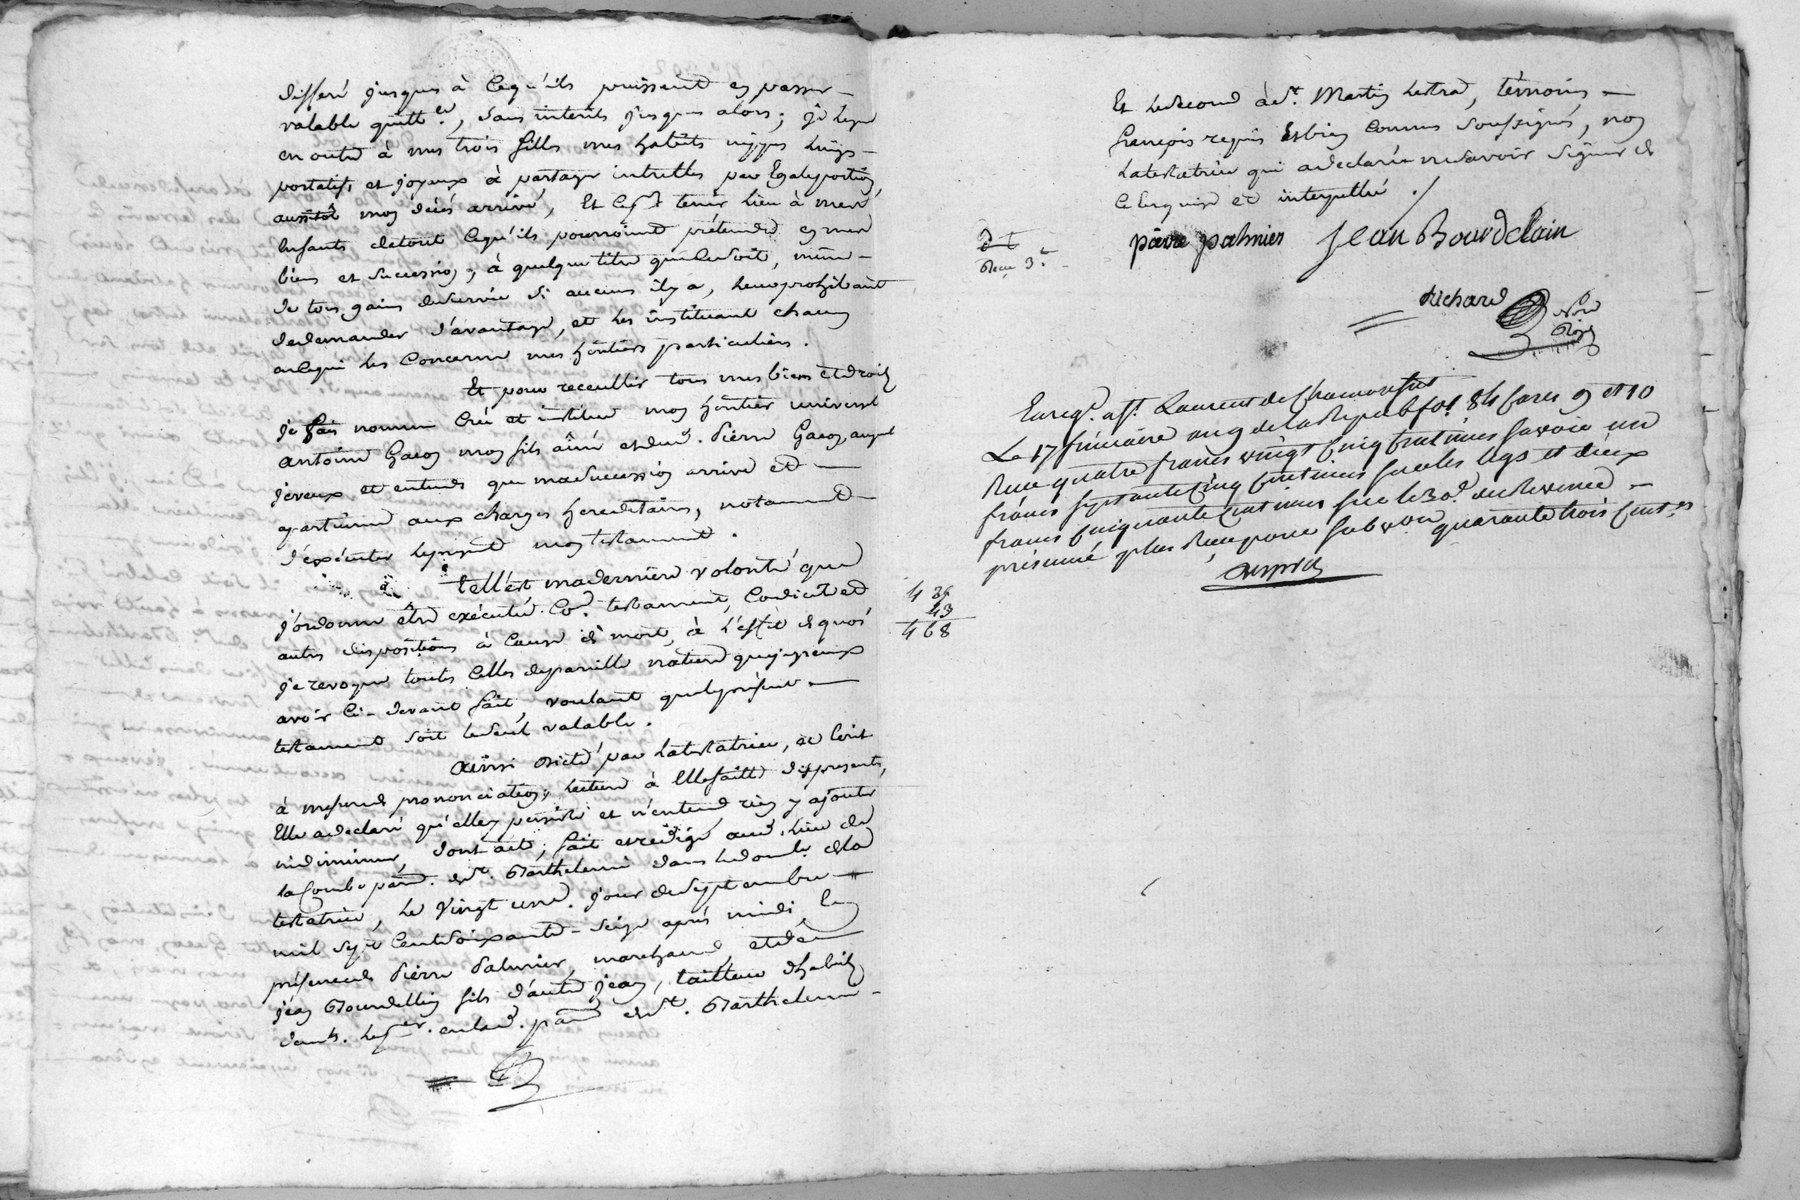 differé jusques à cequ'ils puissent en passer
valable quitt.ce, sans interets jusques alors; je legue
en outre à mes trois filles mes habits nippes linges
portatifs et joyaux à partager entr'elles par Egale portion
aussitôt mon décés arrivé, Et ce p.r tenir lieu à mes d.
Enfants de tout cequ'ils pourroient prétendre en mes
biens et succession, à quelque titre que ce soit, même
de tous gains de survie si aucuns il y a, leur prohibant
de demander d'avantage, et les instituant chacun
en ce qui les concerne mes héritiers particuliers.
Et pour receuillir tous mes biens et droits
je fais nomme Crée et institue mon héritier universel
Antoine Gacon mon fils ainé et dud. Pierre Gacon, auquel
je veux et entends que ma succession arrive et
apartienne aux charges hereditaires, notament
d'exécuter le present mon testament.
tell'est ma derniere volonté que
j'ordonne être exécutée co.e testament, Codicile et
autres dispositions à cause de mort, à l'effet de quoi
je revoque toutes celles de pareille nature que je peux
avoir ci-devant fait, voulant que le présent
testament soit le seul valable.
Ainsi dicté par la testatrice, et Ecrit
à mesure de prononciation, lecture à Elle faitte du present,
Elle a declaré qu'elle y persiste et n'entend rien y ajouter
ni diminuer, dont acte; fait et redigé aud. lieu de
la Combe par. de St. Barthelemi dans le dom.le de la
testatrice, le Vingt une. jour de Septembre
mil sept cent soixante-seize après midi, En
présence de Pierre Palmier, marchand, et de
jean Bourdellin fils d'autre jean, tailleur d'habits
dem.ts le p.er en lad. par. de St. Barthelemi
Et le second à St. Martin Lestra, témoins
françois requis et bien connus soussignés, non
la testatrice qui a declaré ne savoir signer de
ce Enquise et interpellée ./.
pierre palmier Jean Bourdelain
Richard
Reçu 3.
Enreg.é à St. Laurent de Chamousset
Le 17 frimaire an 9 de la Repub. fol. 84 Cases 9 et 10
Reçu quatre francs vingt cinq centimes savoir un
francs septante cinq centimes sur les legs et deux
francs cinquante centimes sur le 30.e du Revenu
présumé plus Reçu pour subvon quarante trois cent.es
4 25
43
4 68